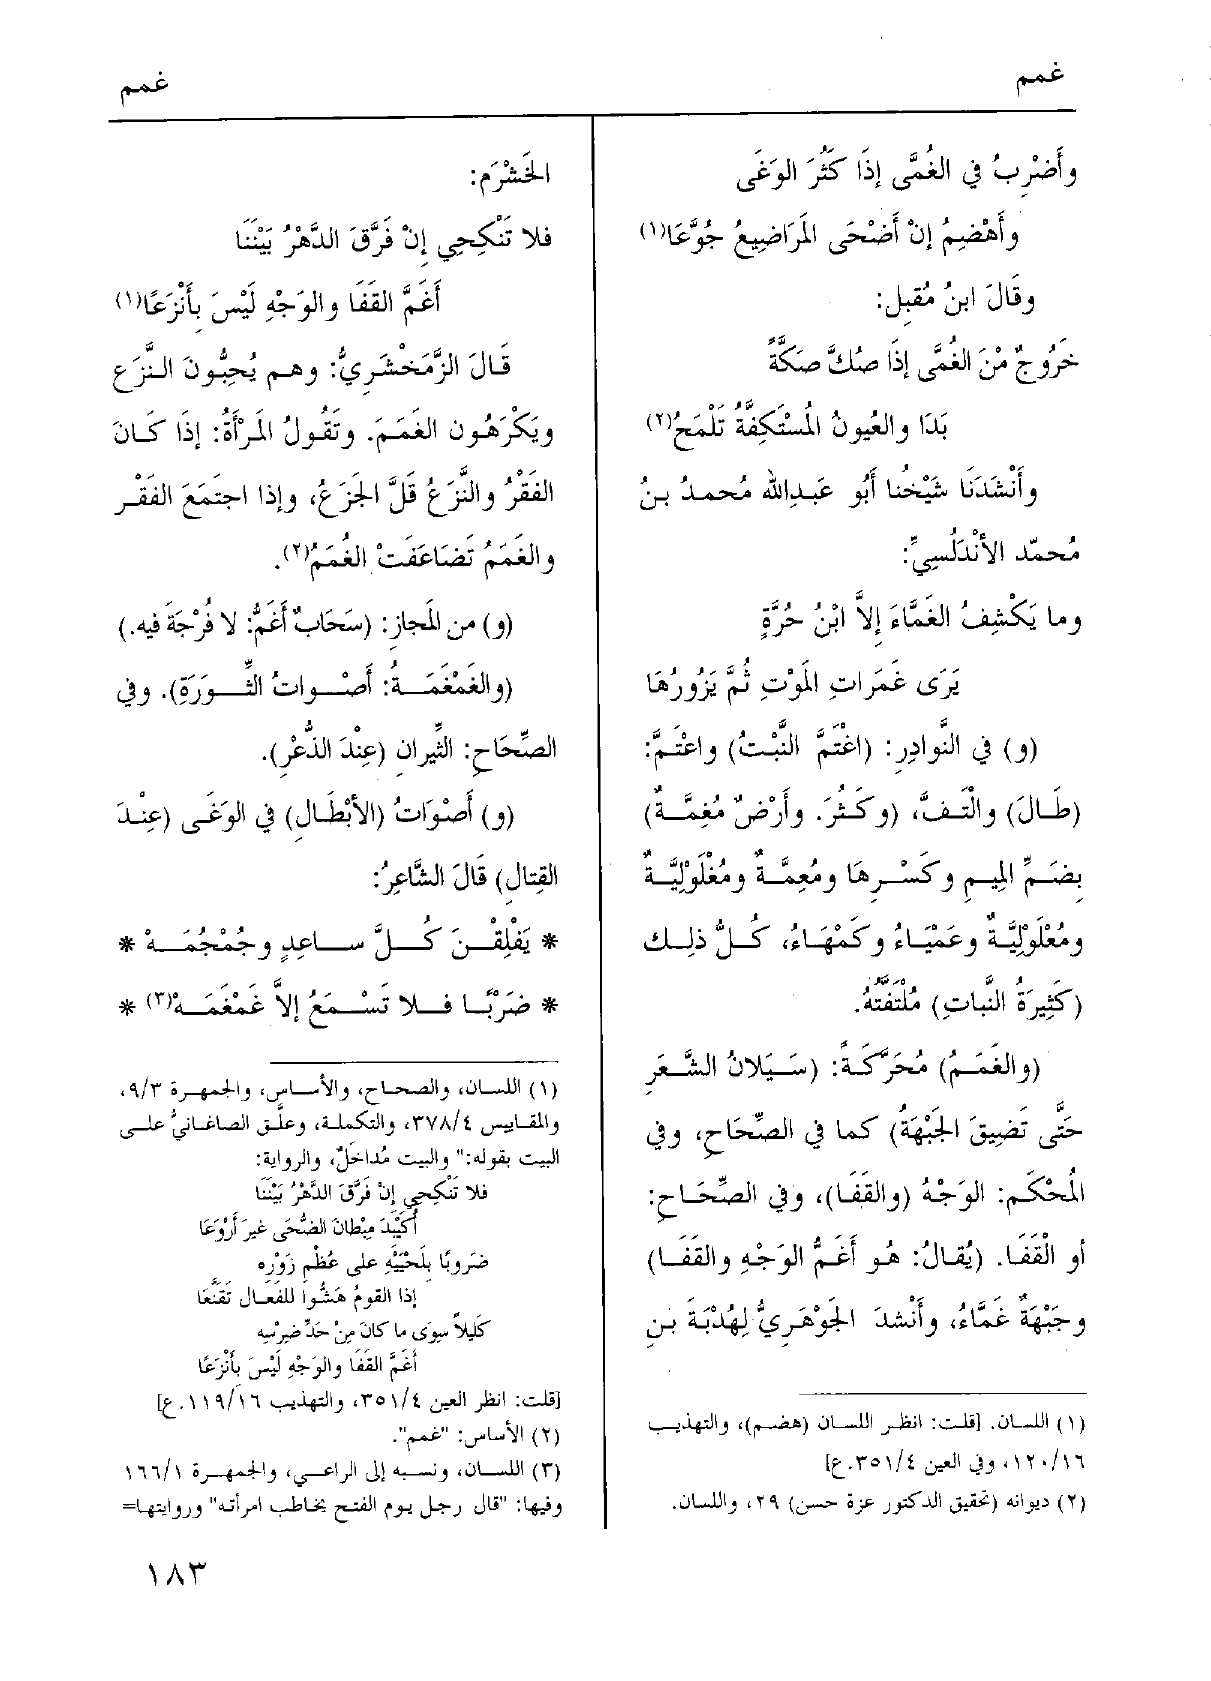 غمم
غمم
وأَضْرِبُ في الغُمَّى إِذَا كَثُرَ الوَغَى
وأَهْضِمُ إِنْ أَضْحَى المَرَاضِيعُ جُوَّعَا(١)
وقَالَ ابنُ مُقبِل:
خَرُوجٌ مْنَ الغُمَّى إِذَا صُكَّ صَكَّةً
بَدَا والعُيونُ المُسْتَكِفَّةُ تَلْمَحُ(٢)
وأَنْشَدَنَا شَيْخُنا أَبُو عَبدِالله مُحمدُ بنُ
مُحمّد الأَنْدَلُسِيِّ:
وما يَكْشِفُ الغَمَّاءَ إِلاَّ ابْنُ حُرَّةٍ
يَرَى غَمَراتِ المَوْتِ ثُمَّ يَزُورُهَا
(و) في النَّوادِرِ: (اغْتَمَّ النَّبْتُ) واعْتَمَّ:
(طَالَ) والْتَفَّ، (وكَثُرَ. وأَرْضٌ مُغِمَّةٌ)
بِضَمِّ المِيمِ وكَسْرِهَا ومُعِمَّةٌ ومُغْلَوْلِيَّةٌ
ومُعْلَوْلِيَّةٌ وعَمْيَاءُ وكَمْهَاءُ، كُلُّ ذلِك
(كَثِيرَةُ النَّباتِ) مُلْتَفَّتُهُ.
(والغَمَمُ) مُحَرَّكَةً: (سَيَلانُ الشَّعَرِ
حَتَّى تَضِيقَ الجَبْهَةُ) كما في الصِّحَاحِ، وفي
المُحْكَمِ: الوَجْهُ (والقَفَا)، وفي الصِّحَاحِ:
أو الْقَفَا. (يُقالُ: هُو أَغَمُّ الوَجْهِ والقَفَا)
وجَبْهَةٌ غَمَّاءُ، وأَنْشدَ الجَوْهَرِيُّ لِهُدْبَةَ بنِ
(١) اللسان. [قلت: انظر اللسان (هضم)، والتهذيب
١٢٠/١٦، وفي العين ٣٥١/٤.ع]
(٢) ديوانه (تحقيق الدكتور عزة حسن) ٢٩، واللسان.
الخَشْرَمِ:
فلا تَنْكِحِي إِنْ فَرَّقَ الدَّهْرُ بَيْنَنَا
أَغَمَّ القَفَا والوَجْهِ لَيْسَ بِأَنْزَعًا(١)
قَالَ الزَّمَخْشَرِيُّ: وهم يُحِبُّونَ النَّزَع
ويَكْرَهُون الغَمَمَ. وتَقُولُ المَرأَةُ: إِذَا كَانَ
الفَقْرُ والنَّزَعُ قَلَّ الجَزَعُ، وإذا اجتَمَعَ الفَقْر
والغَمَمُ تَضَاعَفَتْ الغُمَمُ(٢).
(و) من المَجازِ: (سَحَابٌ أَغَمُّ: لا فُرْجَةَ فيه.)
(والغَمْغَمَةُ: أَصْواتُ الثِّوَرَةِ). وفي
الصِّحَاحِ: الثِّيران (عِنْدَ الذُّعْرِ).
(و) أَصْوَاتُ (الأَبْطَالِ) في الوَغَى (عِنْدَ
القِتالِ) قَالَ الشَّاعِرُ:
* يَفْلِقْنَ كُلَّ ساعِدٍ وجُمْجُمَهْ *
* ضَرْبًا فلا تَسْمَعُ إِلاَّ غَمْغَمَهْ(٣) *
(١) اللسان، والصحاح، والأساس، والجمهرة ٩/٣،
والمقاييس ٣٧٨/٤، والتكملة، وعلَّق الصاغانيُّ على
البيت بقوله:" والبيت مُداخَلٌ، والرواية:
فلا تَنْكِحِي إِنْ فَرَّقَ الدَّهْرُ بَيْنَنَا
أُكَيْبِدَ مِبْطانَ الضُّحَى غيرَ أَرْوَعَا
ضَروبًا بِلَحْيَيْهِ على عُظْمِ زَوْرِه
إذا القومُ هَشُّوا للفَعَالِ تَقَنَّعَا
كَلِيلاً سِوَى ما كانَ مِنْ حَدِّ ضِرْسِهِ
أَغَمَّ القَفَا والوَجْهِ لَيْسَ بِأَنْزَعَا
[قلت: انظر العين ٣٥١/٤، والتهذيب ١١٩/١٦.ع]
(٢) الأساس: "غمم".
(٣) اللسان، ونسبه إلى الراعي، والجمهرة ١٦٦/١
وفيها: "قال رجل يوم الفتح يخاطب امرأته" وروايتها=
١٨٣